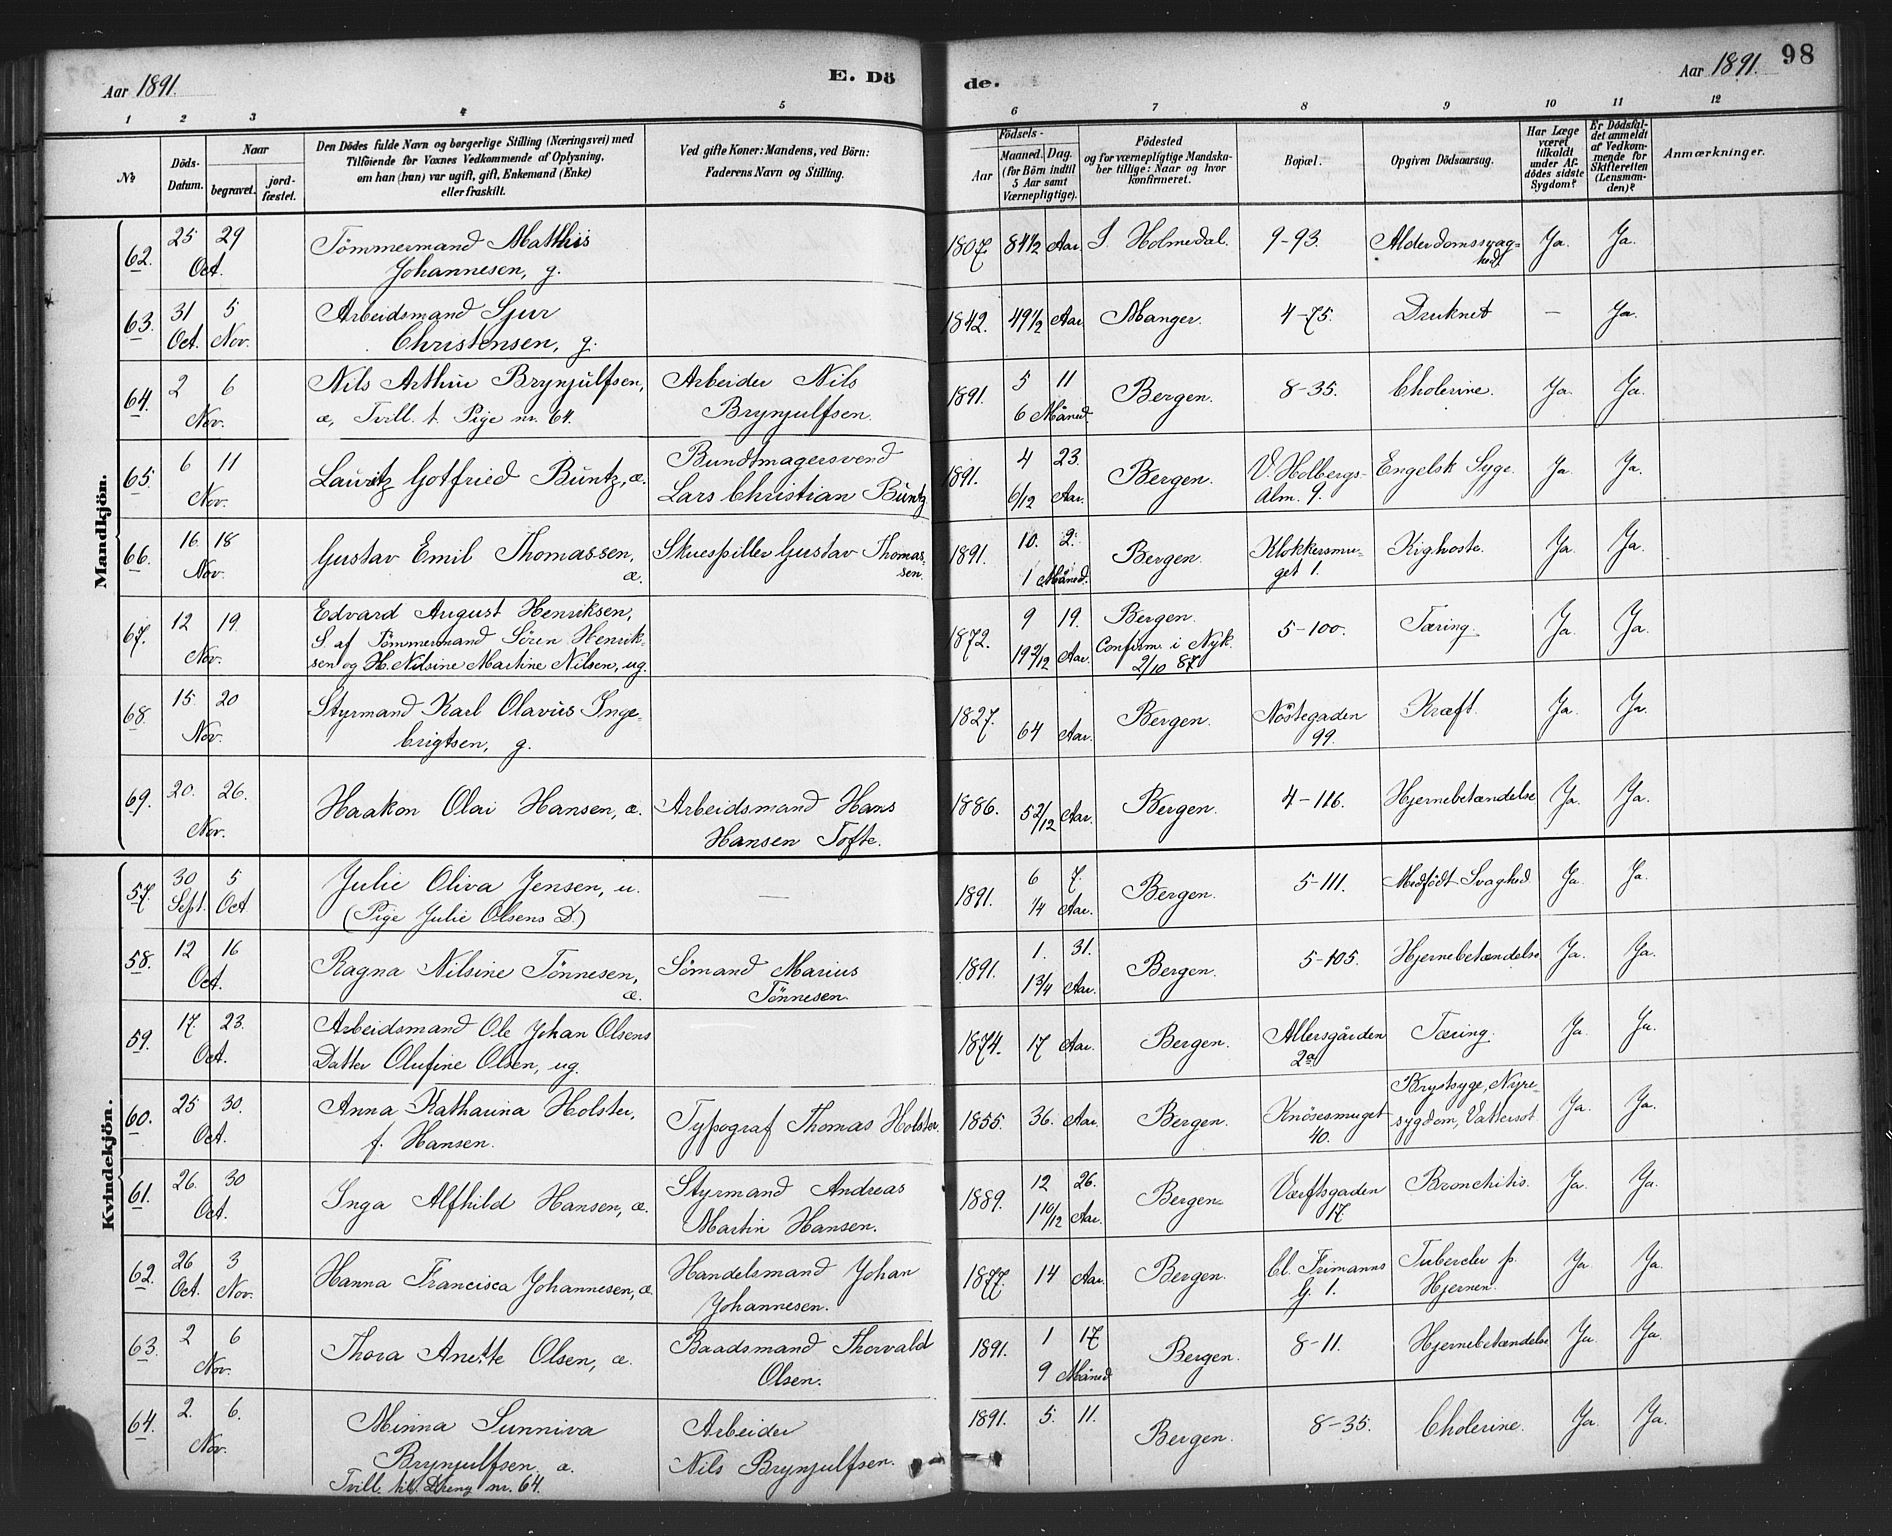 Aar 1891.
E. Dö
de.
Aar 1891.
98
1 2 3 4 5 6 7 8 9 10 11 12
No
Döds-
Datum.
Naar
begravet.
jord-
fæstet.
Den Dödes fulde Navn og borgerlige Stilling (Næringsvei) med
Tilföiende for Voxnes Vedkommende af Oplysning,
om han (hun) var ugift, gift, Enkemand (Enke)
eller fraskilt.
Ved gifte Koner: Mandens, ved Börn:
Faderens Navn og Stilling.
Födsels-
Aar
Maaned. Dag.
(for Börn indtil
5 Aar samt
Værnepligtige).
Födested
og for værnepligtige Mandska-
ber tillige: Naar og hvor
konfirmeret.
Bopæl.
Opgiven Dödsaarsag.
Har Læge
været
tilkaldt
under Af-
dödes sidste
Sygdom?
Er Dödsfal-
det anmeldt
af Vedkom-
mende for
Skifteretten
(Lensman-
den)?
Anmærkninger.
Mandkjön.
62. 25 29 Oct. Tömmermand Matthis
Johannesen, g.
1807. 84 1/2 Aar. I. Holmedal. 9-93. Alderdomssvag-
hed. Ja. Ja.
63. 31 Oct. 5 Nov. Arbeidsmand Sjur
Christensen, g.
1842. 49 1/2 Aar. Manger. 4-75. Druknet — Ja.
64. 2 6 Nov. Nils Arthur Brynjulfsen,
æ, Tvill. t. Pige nr. 64.
Arbeider Nils
Brynjulfsen.
1891. 5 11
6 Måned. Bergen. 8-35. Cholerine. Ja. Ja.
65. 6 11 Nov. Lauritz Gotfried Buntz, æ.
Bundtmagersvend
Lars Christian Buntz
1891. 4 23.
6/12 Aar. Bergen. V. Holbergs-
Alm. 9. Engelsk Syge. Ja. Ja.
66. 16. 18 Nov. Gustav Emil Thomassen,
æ.
Skuespiller Gustav Thomas-
sen.
1891. 10. 2.
1 Måned. Bergen. Klokkersmu-
get 1. Kighoste. Ja. Ja.
67. 12 19. Nov. Edvard August Henriksen,
S. af Tömmermand Sören Henrik-
sen og H. Nilsine Martine Nilsen, ug.
1872. 9 19.
19 2/12 Aar. Bergen.
Confirm. i Nyk.
2/10 87 5-100. Tæring. Ja. Ja.
68. 15. 20 Nov. Styrmand Karl Olavus Inge-
brigtsen, g.
1827. 64 Aar. Bergen. Nöstegaden
99. Kræft. Ja. Ja.
69. 20. 26. Nov. Haakon Olai Hansen, æ.
Arbeidsmand Hans
Hansen Tofte.
1886. 5 2/12 Aar. Bergen. 4-126. Hjernebetændelse Ja. Ja.
Kvindekjön.
57. 30 Sept. 5 Oct Julie Oliva Jensen, u.
(Pige Julie Olsens D.)
—
1891. 6 7.
1/4 Aar. Bergen. 5-111. Medfödt Svaghed. Ja. Ja.
58. 12 16 Oct. Ragna Nilsine Tönnesen,
æ.
Sömand Marius
Tönnesen.
1891. 1. 31.
1 3/4 Aar. Bergen. 5-105. Hjernebetændelse Ja. Ja.
59. 17. 23. Oct. Arbeidsmand Ole Johan Olsens
Datter Olufine Olsen, ug.
1874. 17 Aar. Bergen. Allersgården
2a Tæring. Ja. Ja.
60. 25 30. Oct. Anna Katharina Holster,
f. Hansen.
Typograf Thomas Holster.
1855. 36. Aar. Bergen. Knösesmuget
40. Brystsyge, Nyre-
sygdom, Vattersot. Ja. Ja.
61. 26. 30 Oct. Inga Alfhild Hansen, æ.
Styrmand Andreas
Martin Hansen.
1889. 12 26.
1 10/12 Aar. Bergen. Værftsgaden
17. Bronchitis. Ja. Ja.
62. 26 Oct. 3 Nov. Hanna Francisca Johannesen, æ
Handelsmand Johan
Johannesen.
1877. 14 Aar. Bergen. Cl. Frimanns
G. 1. Tubercler p.
Hjernen. Ja. Ja.
63. 2 6 Nov. Thora Anette Olsen, æ.
Baadsmand Thorvald
Olsen.
1891. 1 17
9 Måned Bergen. 8-11. Hjernebetændelse Ja. Ja.
64. 2. 6. Nov. Minna Sunniva
Brynjulfsen, æ.
Tvill. til Dreng nr. 64.
Arbeider
Nils Brynjulfsen.
1891. 5. 11. Bergen. 8-35. Cholerine. Ja. Ja.